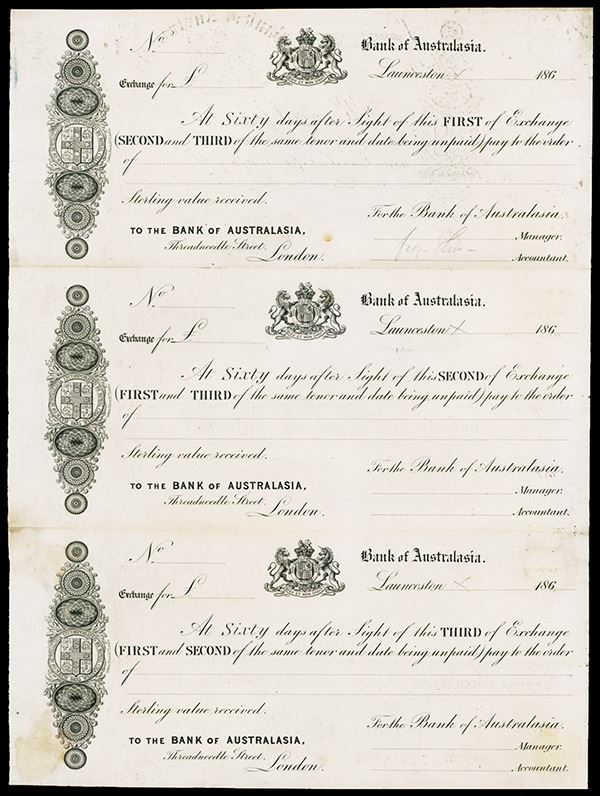 No
Bank of Australasia.
Launceston x 186
Exchange for £
At Sixty days after Sight of this FIRST of Exchange
(SECOND and THIRD of the same tenor and date being unpaid) pay to the order
of
Sterling value received.
For the Bank of Australasia.
TO THE BANK OF AUSTRALASIA,
Manager.
Threadneedle Street.
London.
Accountant.
No
Bank of Australasia.
Launceston x 186
Exchange for £
At Sixty days after Sight of this SECOND of Exchange
(FIRST and THIRD of the same tenor and date being unpaid) pay to the order
of
Sterling value received.
For the Bank of Australasia.
TO THE BANK OF AUSTRALASIA,
Manager.
Threadneedle Street.
London.
Accountant.
No
Bank of Australasia.
Launceston x 186
Exchange for £
At Sixty days after Sight of this THIRD of Exchange
(FIRST and SECOND of the same tenor and date being unpaid) pay to the order
of
Sterling value received.
For the Bank of Australasia.
TO THE BANK OF AUSTRALASIA,
Manager.
Threadneedle Street.
London.
Accountant.